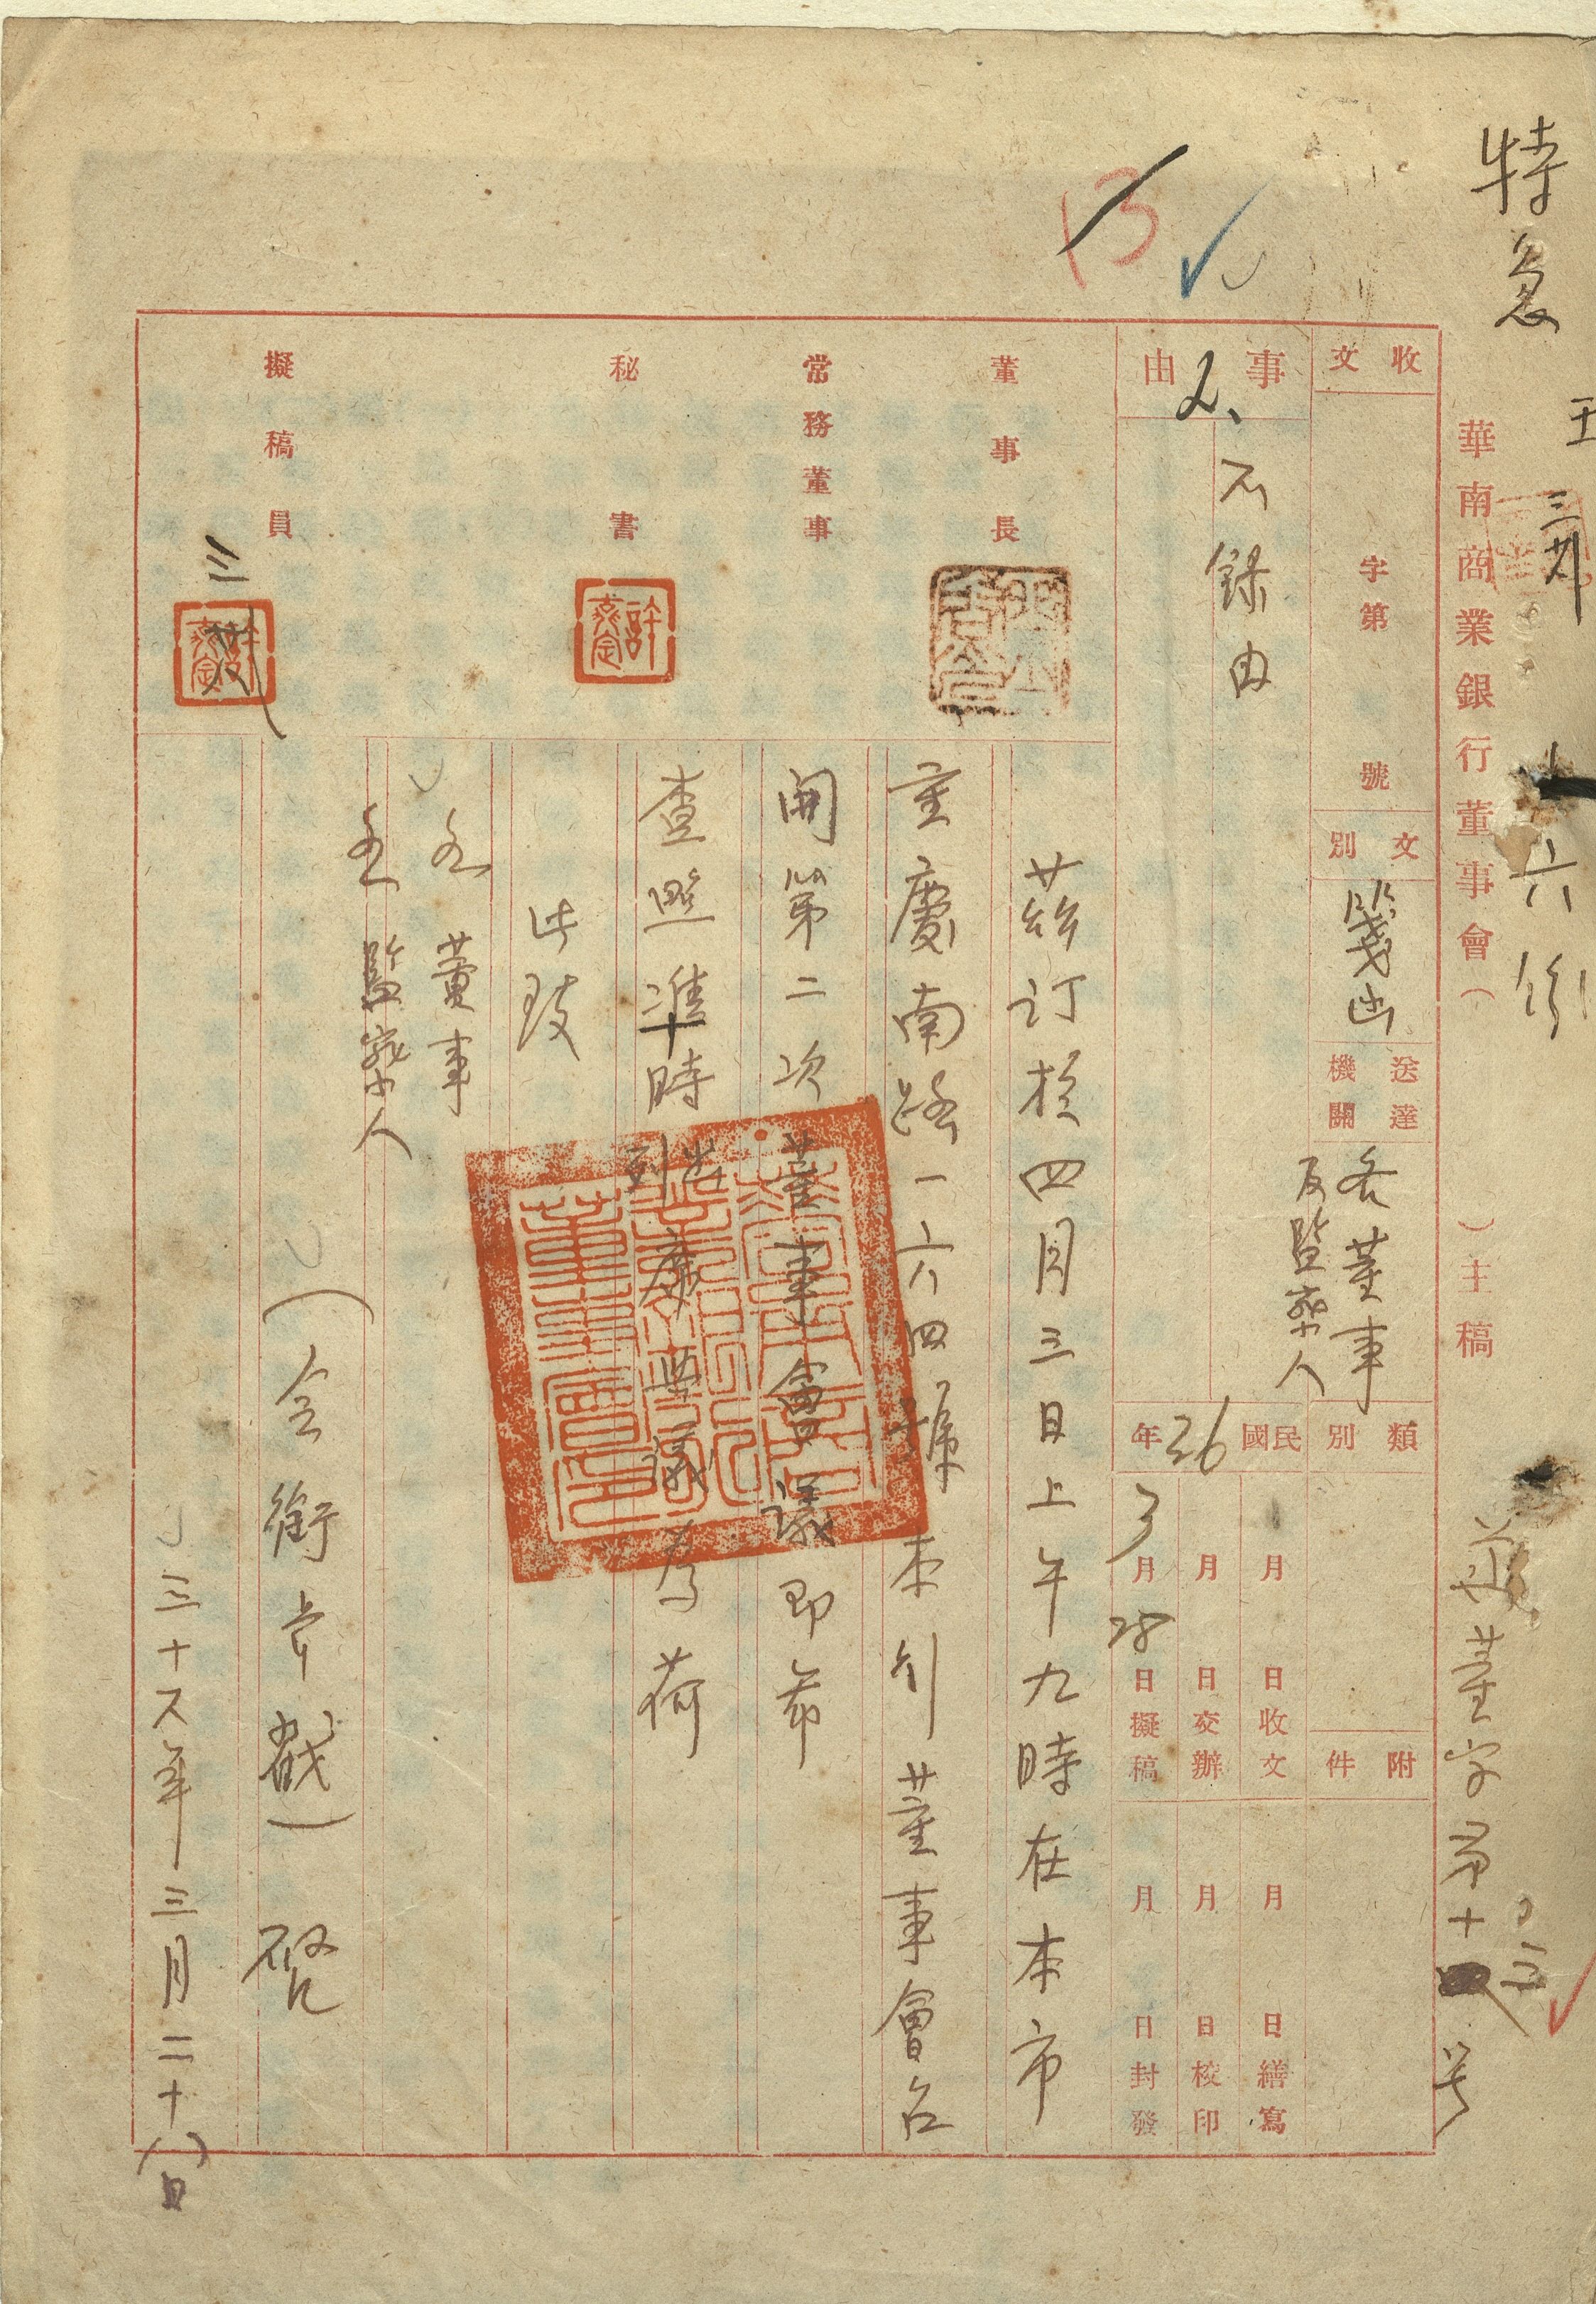 特急
華南商業銀行董事會（　　）主稿
華董字第十三號
收文　字第　號
文別　箋函
送達機關　各董事及監察人
類別
附件
事由　不錄由
民國36年
月　日收文　月　日繕寫
月　日交辦　月　日校印
3月28日擬稿　月　日封發
董事長
常務董事
秘書
擬稿員
茲訂於四月三日上午九時在本市
重慶南路一六四號本行董事會召
開第二次董事會議即希
查照準時出列席與議為荷
此致
各董事
監察人
（全銜戳）啟
三十六年三月二十八日